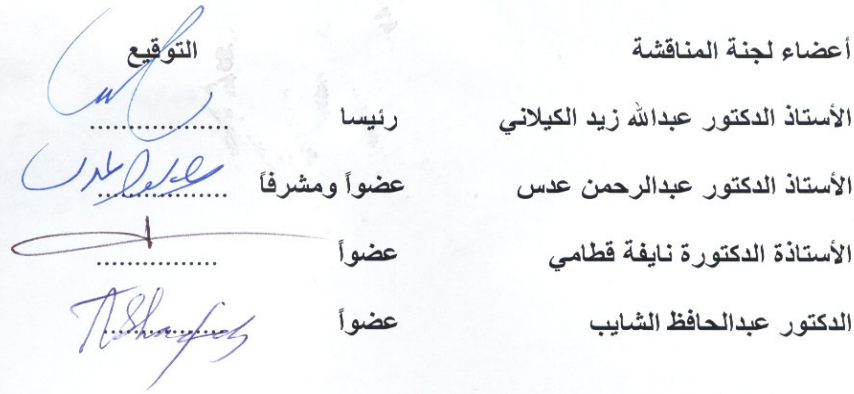 أعضاء لجنة المناقشة التوقيع
الأستاذ الدكتور عبدالله زيد الكيلاني رئيسا ..................
الأستاذ الدكتور عبدالرحمن عدس عضواً ومشرفاً ..................
الأستاذة الدكتورة نايفة قطامي عضواً ................
الدكتور عبدالحافظ الشايب عضواً ................